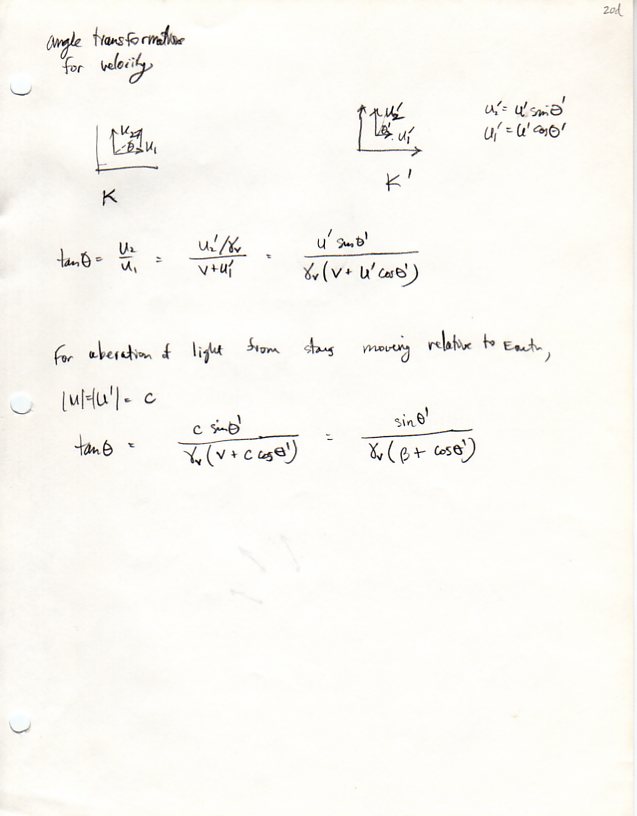 20d
angle transformation
for velocity
u₂ θ u₁
K
u₂' θ' u₁'
K'
u₂' = u' sinθ'
u₁' = u' cosθ'
tanθ = u₂/u₁ = (u₂'/γᵥ)/(v+u₁') = u' sinθ'/(γᵥ(v + u' cosθ'))
For aberation of light from stars moving relative to Earth,
|u|=|u'| = c
tanθ = c sinθ'/(γᵥ(v + c cosθ')) = sinθ'/(γᵥ(β + cosθ'))